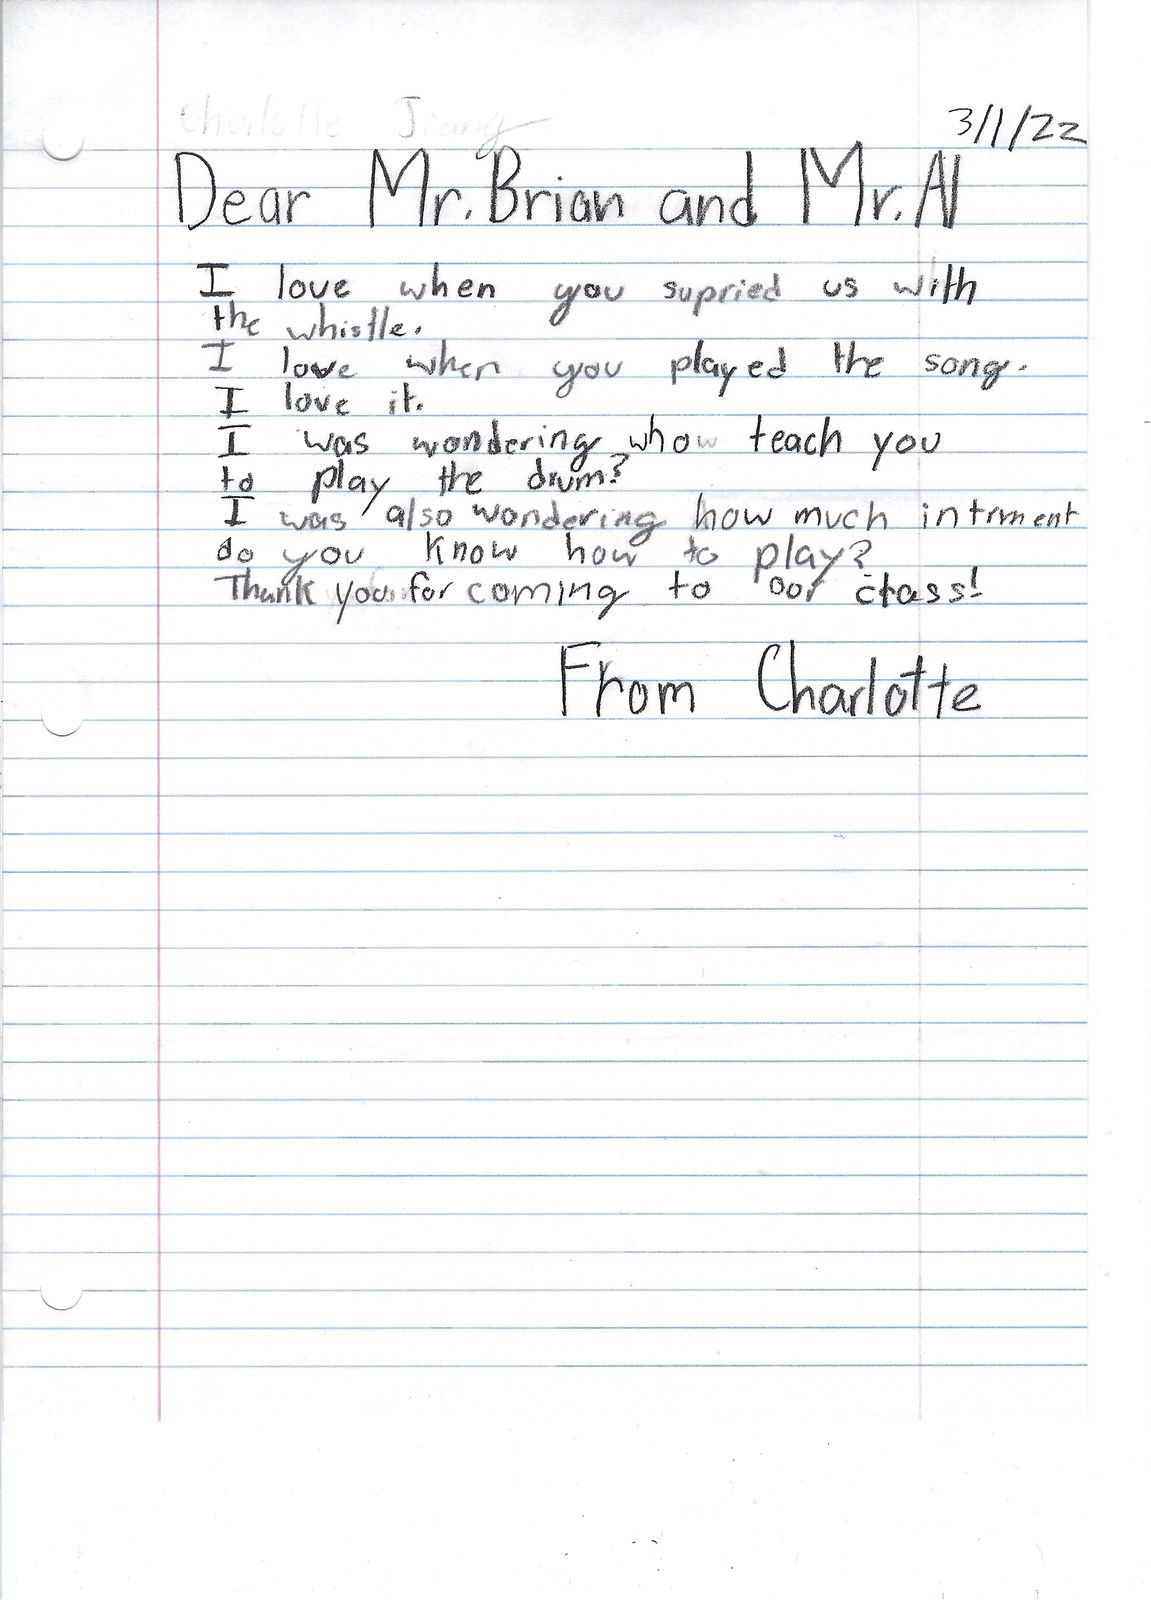 Charlotte Jiang
3/1/22
Dear Mr. Brian and Mr. Al
I love when you supried us with
the whistle.
I love when you played the song.
I love it.
I was wondering whow teach you
to play the drum?
I was also wondering how much intrment
do you know how to play?
Thank you for coming to oor class!
From Charlotte